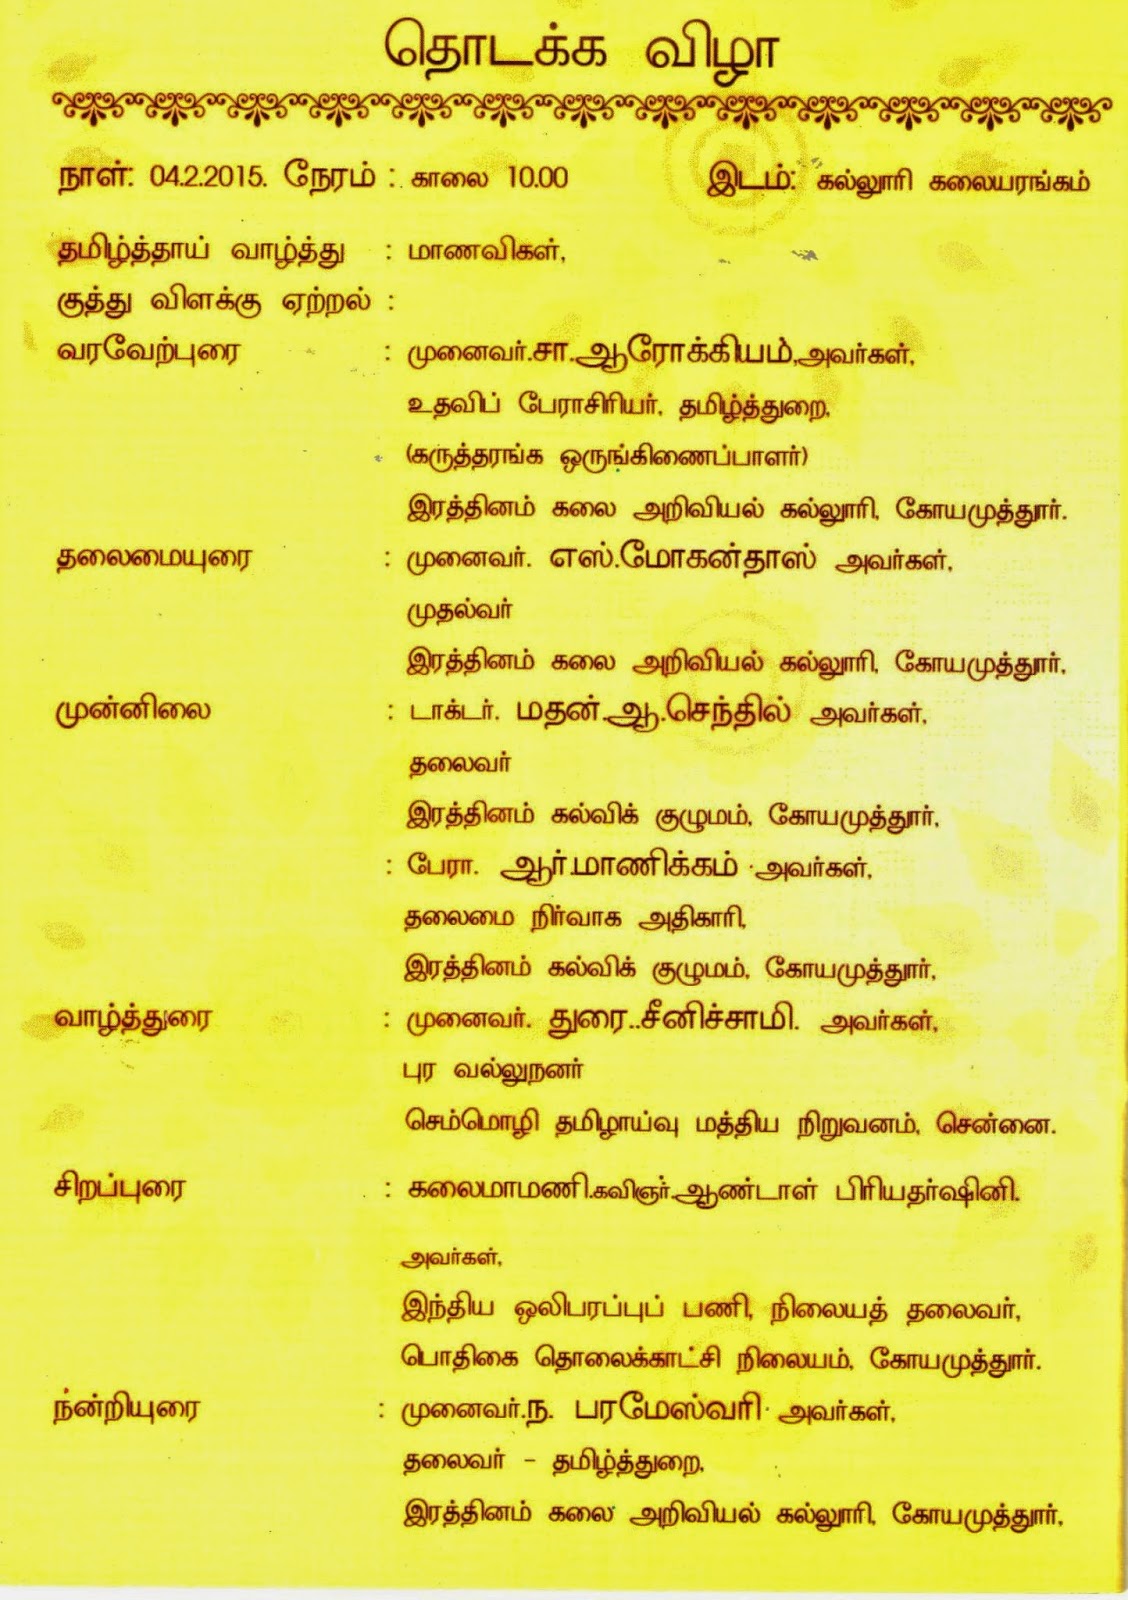 தொடக்க விழா
நாள்: 04.2.2015. நேரம் : காலை 10.00 இடம்: கல்லூரி கலையரங்கம்
தமிழ்த்தாய் வாழ்த்து : மாணவிகள்,
குத்து விளக்கு ஏற்றல் :
வரவேற்புரை : முனைவர்.சா.ஆரோக்கியம்,அவர்கள்,
உதவிப் பேராசிரியர், தமிழ்த்துறை,
(கருத்தரங்க ஒருங்கிணைப்பாளர்)
இரத்தினம் கலை அறிவியல் கல்லூரி, கோயமுத்தூர்.
தலைமையுரை : முனைவர். எஸ்.மோகன்தாஸ் அவர்கள்,
முதல்வர்
இரத்தினம் கலை அறிவியல் கல்லூரி, கோயமுத்தூர்,
முன்னிலை : டாக்டர். மதன்.ஆ.செந்தில் அவர்கள்,
தலைவர்
இரத்தினம் கல்விக் குழுமம், கோயமுத்தூர்,
: பேரா. ஆர்.மாணிக்கம் அவர்கள்,
தலைமை நிர்வாக அதிகாரி,
இரத்தினம் கல்விக் குழுமம், கோயமுத்தூர்,
வாழ்த்துரை : முனைவர். துரை..சீனிச்சாமி. அவர்கள்,
புர வல்லுநனர்
செம்மொழி தமிழாய்வு மத்திய நிறுவனம், சென்னை.
சிறப்புரை : கலைமாமணி.கவிஞர்.ஆண்டாள் பிரியதர்ஷினி.
அவர்கள்,
இந்திய ஒலிபரப்புப் பணி, நிலையத் தலைவர்,
பொதிகை தொலைக்காட்சி நிலையம், கோயமுத்தூர்.
ந்ன்றியுரை : முனைவர்.ந. பரமேஸ்வரி அவர்கள்,
தலைவர் – தமிழ்த்துறை,
இரத்தினம் கலை அறிவியல் கல்லூரி, கோயமுத்தூர்,